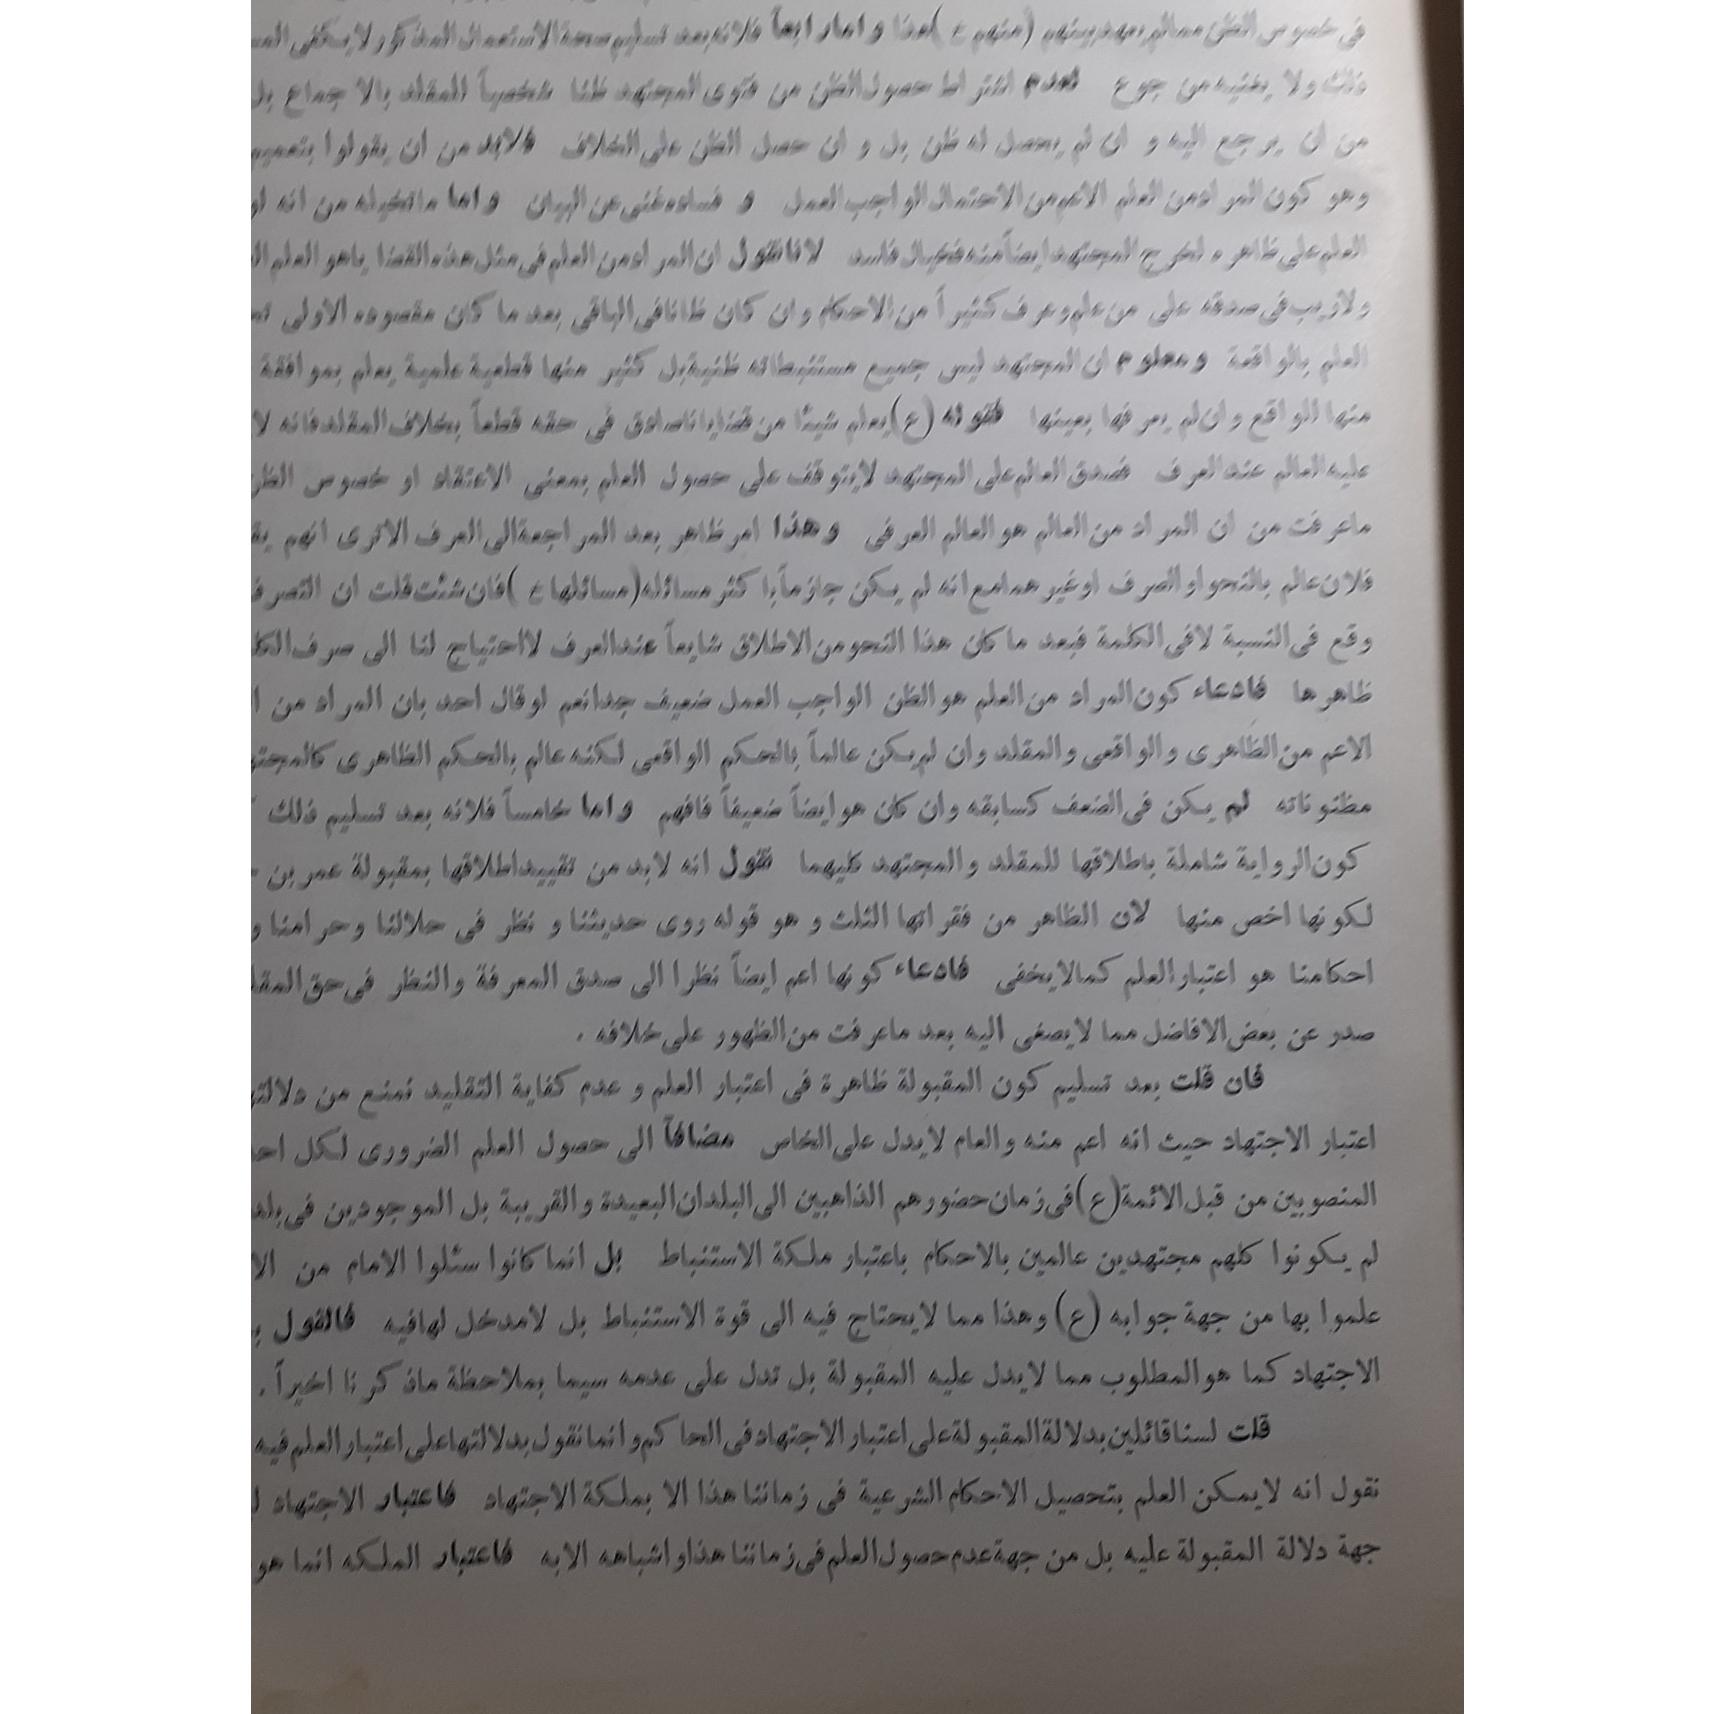 فى خصوص الظن ممالم يعهد بينهم (منهم خ) هذا و اما رابعاً فلانه بعد تسليم صحة الاستعمال المذكور لايكفى
ذلك ولا يغنيه من جوع لعدم اشتراط حصول الظن من فتوى المجتهد ظنا شخصياً للمقلد بالاجماع بل
من ان يرجع اليه و ان لم يحصل له ظن بل و ان حصل الظن على الخلاف فلابد من ان يقولوا بتعميم
وهو كون المراد من العلم الاعم من الاحتمال الواجب العمل و فساده غنى عن البيان واما ماتخيله من انه لو
العلم على ظاهره لخرج المجتهد ايضاً منه فخيال فاسد لانا نقول ان المراد من العلم فى مثل هذه القضايا هو العلم
ولاريب فى صدقه على من علم وعرف كثيراً من الاحكام وان كان ظانا فى الباقى بعد ما كان مقصوده الاولى
العلم بالواقعة ومعلوم ان المجتهد ليس جميع مستنبطاته ظنية بل كثير منها قطعية علمية يعلم بموافقة
منها الواقع وان لم يعرفها بعينها فقوله (ع) يعلم شيئا من قضايانا صادق فى حقه قطعاً بخلاف المقلد فانه لا
عليه العالم عند العرف فصدق العالم على المجتهد لايتوقف على حصول العلم بمعنى الاعتقاد او خصوص الظن
ماعرفت من ان المراد من العالم هو العالم العرفى وهذا امر ظاهر بعد المراجعة الى العرف الاترى انهم
فلان عالم بالنحو او الصرف او غيرهما مع انه لم يكن جازماً باكثر مسائله (مسائلها خ) فان شئت قلت ان التصرف
وقع فى النسبة لافى الكلمة فبعد ماكان هذا النحو من الاطلاق شايعاً عند العرف لااحتياج لنا الى صرف
ظاهرها فادعاء كون المراد من العلم هو الظن الواجب العمل ضعيف جدا نعم لو قال احد بان المراد من
الاعم من الظاهرى والواقعى والمقلد وان لم يكن عالماً بالحكم الواقعى لكنه عالم بالحكم الظاهرى
مظنوناته لم يكن فى الضعف كسابقه وان كان هو ايضاً ضعيفاً فافهم واما خامساً فلانه بعد تسليم ذلك
كون الرواية شاملة باطلاقها للمقلد والمجتهد كليهما نقول انه لابد من تقييد اطلاقها بمقبولة عمر بن
لكونها اخص منها لان الظاهر من فقراتها الثلث و هو قوله روى حديثنا و نظر فى حلالنا وحرامنا و
احكامنا هو اعتبار العلم كما لايخفى فادعاء كونها اعم ايضاً نظرا الى صدق المعرفة والنظر فى حق
صدر عن بعض الافاضل مما لايصغى اليه بعد ماعرفت من الظهور على خلافه .
فان قلت بعد تسليم كون المقبولة ظاهرة فى اعتبار العلم و عدم كفاية التقليد نمنع من
اعتبار الاجتهاد حيث انه اعم منه والعام لايدل على الخاص مضافاً الى حصول العلم الضرورى لكل
المنصوبين من قبل الائمة (ع) فى زمان حضورهم الذاهبين الى البلدان البعيدة والقريبة بل الموجودين فى
لم يكونوا كلهم مجتهدين عالمين بالاحكام باعتبار ملكة الاستنباط بل انما كانوا سئلوا الامام من
علموا بها من جهة جوابه (ع) وهذا مما لايحتاج فيه الى قوة الاستنباط بل لامدخل لهافيه فالقول
الاجتهاد كما هو المطلوب مما لايدل عليه المقبولة بل تدل على عدمه سيما بملاحظة ماذكرنا اخيراً .
قلت لسنا قائلين بدلالة المقبولة على اعتبار الاجتهاد فى الحاكم وانما نقول بدلالتها على اعتبار العلم فيه
نقول انه لايمكن العلم بتحصيل الاحكام الشرعية فى زماننا هذا الا بملكة الاجتهاد فاعتبار الاجتهاد
جهة دلالة المقبولة عليه بل من جهة عدم حصول العلم فى زماننا هذا و اشباهه الابه فاعتبار الملكه انما هو